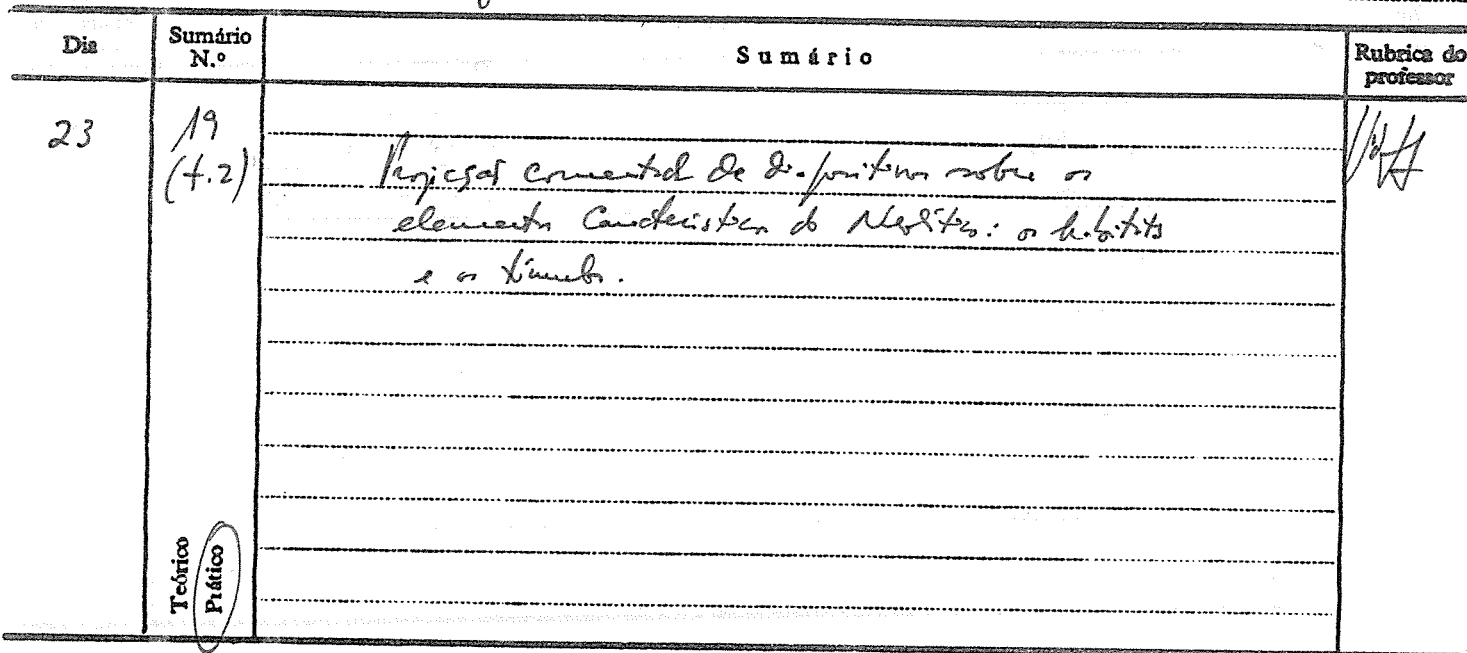 Dia
Sumário N.º
Sumário
Rubrica do professor
23
19
(t.2)
Projecção comentada de diapositivos sobre os
elementos característicos do Neolítico: os habitats
e os túmulos.
Teórico
Prático